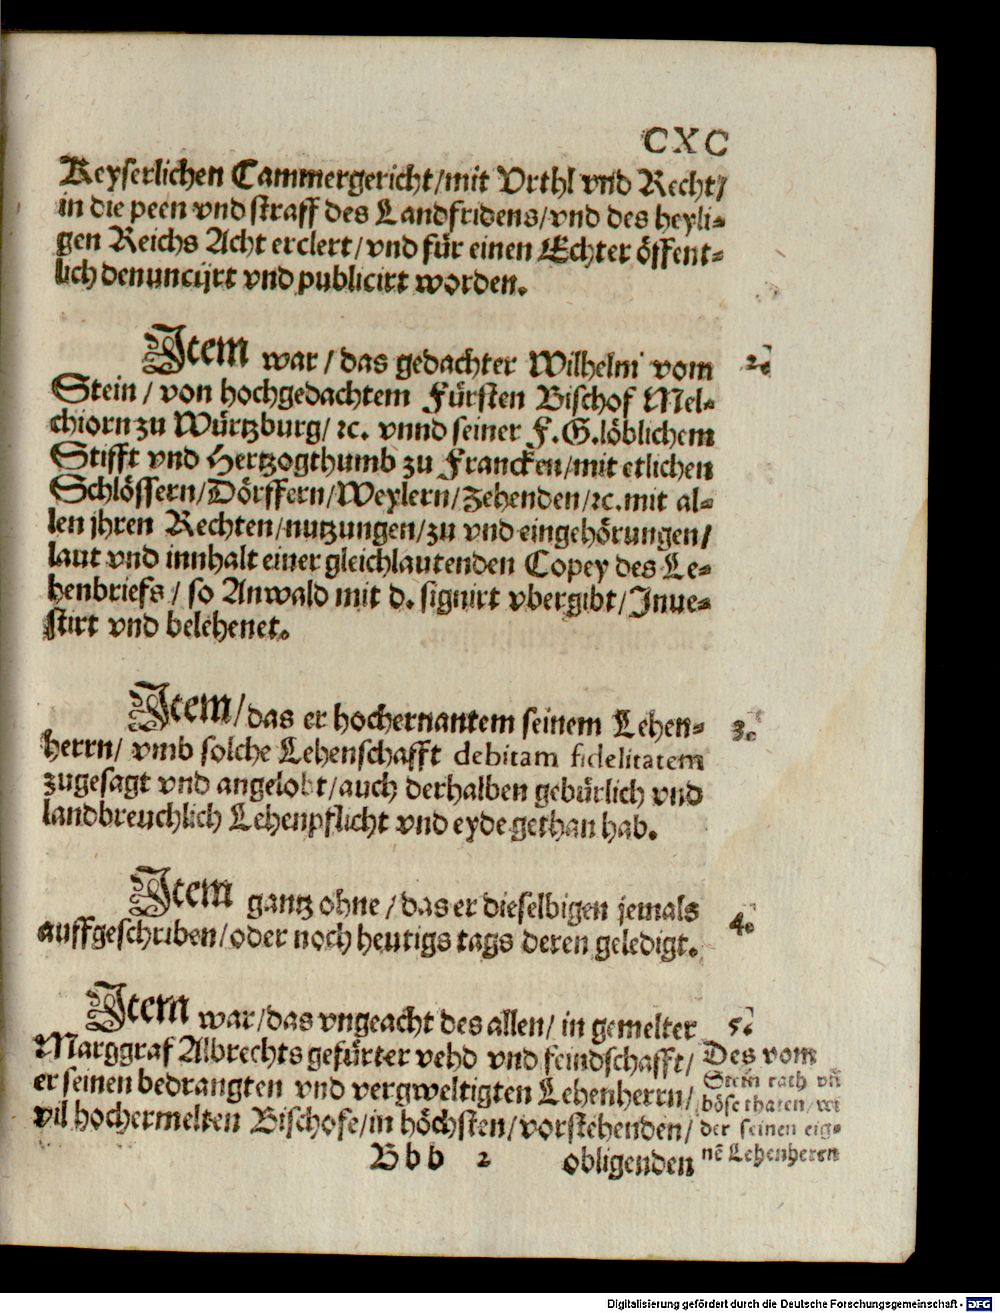 CXC
Keyserlichen Cammergericht/mit Vrthl vnd Recht/
in die peen vnd straff des Landfridens/vnd des heyli-
gen Reichs Acht erclert/vnd für einen Echter öffent-
lich denuncijrt vnd publicirt worden.
Item war/das gedachter Wilhelm vom
Stein/von hochgedachtem Fürsten Bischof Mel-
chiorn zu Würtzburg/ꝛc. vnnd seiner F.G.löblichem
Stifft vnd Hertzogthumb zu Francken/mit etlichen
Schlössern/Dörffern/Weylern/Zehenden/ꝛc.mit al-
len jhren Rechten/nutzungen/zu vnd eingehörungen/
laut vnd innhalt einer gleichlautenden Copey des Le-
henbriefs/so Anwald mit d. signirt vbergibt/Inue-
stirt vnd belehenet.
2.
Item/das er hochernantem seinem Lehen-
herrn/vmb solche Lehenschafft debitam fidelitatem
zugesagt vnd angelobt/auch derhalben gebürlich vnd
landbreuchlich Lehenpflicht vnd eyde gethan hab.
3.
Item gantz ohne/das er dieselbigen jemals
auffgeschriben/oder noch heutigs tags deren geledigt.
4.
Item war/das vngeacht des allen/in gemelter
Marggraf Albrechts gefürter vehd vnd feindschafft/
er seinen bedrangten vnd vergweltigten Lehenherrn/
vil hochermelten Bischofe/in höchsten/vorstehenden/
5.
Des vom
Stein rath vñ
böse thaten/wi
der seinen eig-
nẽ Lehenherrn
Bbb 2 obligenden
Digitalisierung gefördert durch die Deutsche Forschungsgemeinschaft - DFG